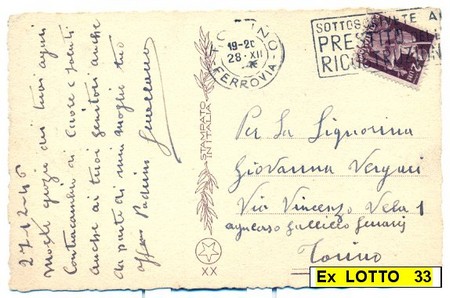 27-12-46
Molte grazie dei tuoi auguri
Contraccambio di cuore e saluti
anche ai tuoi genitori anche
da parte di mia moglie tuo
STAMPATO
IN ITALIA
XX
TORINO
19-20
28·XII
FERROVIA
SOTTOSCRIVETE A
PRES
RIC
Per la Signorina
Giovanna Vergari
Via Vincenzo Vela 1
Torino
Ex LOTTO 33